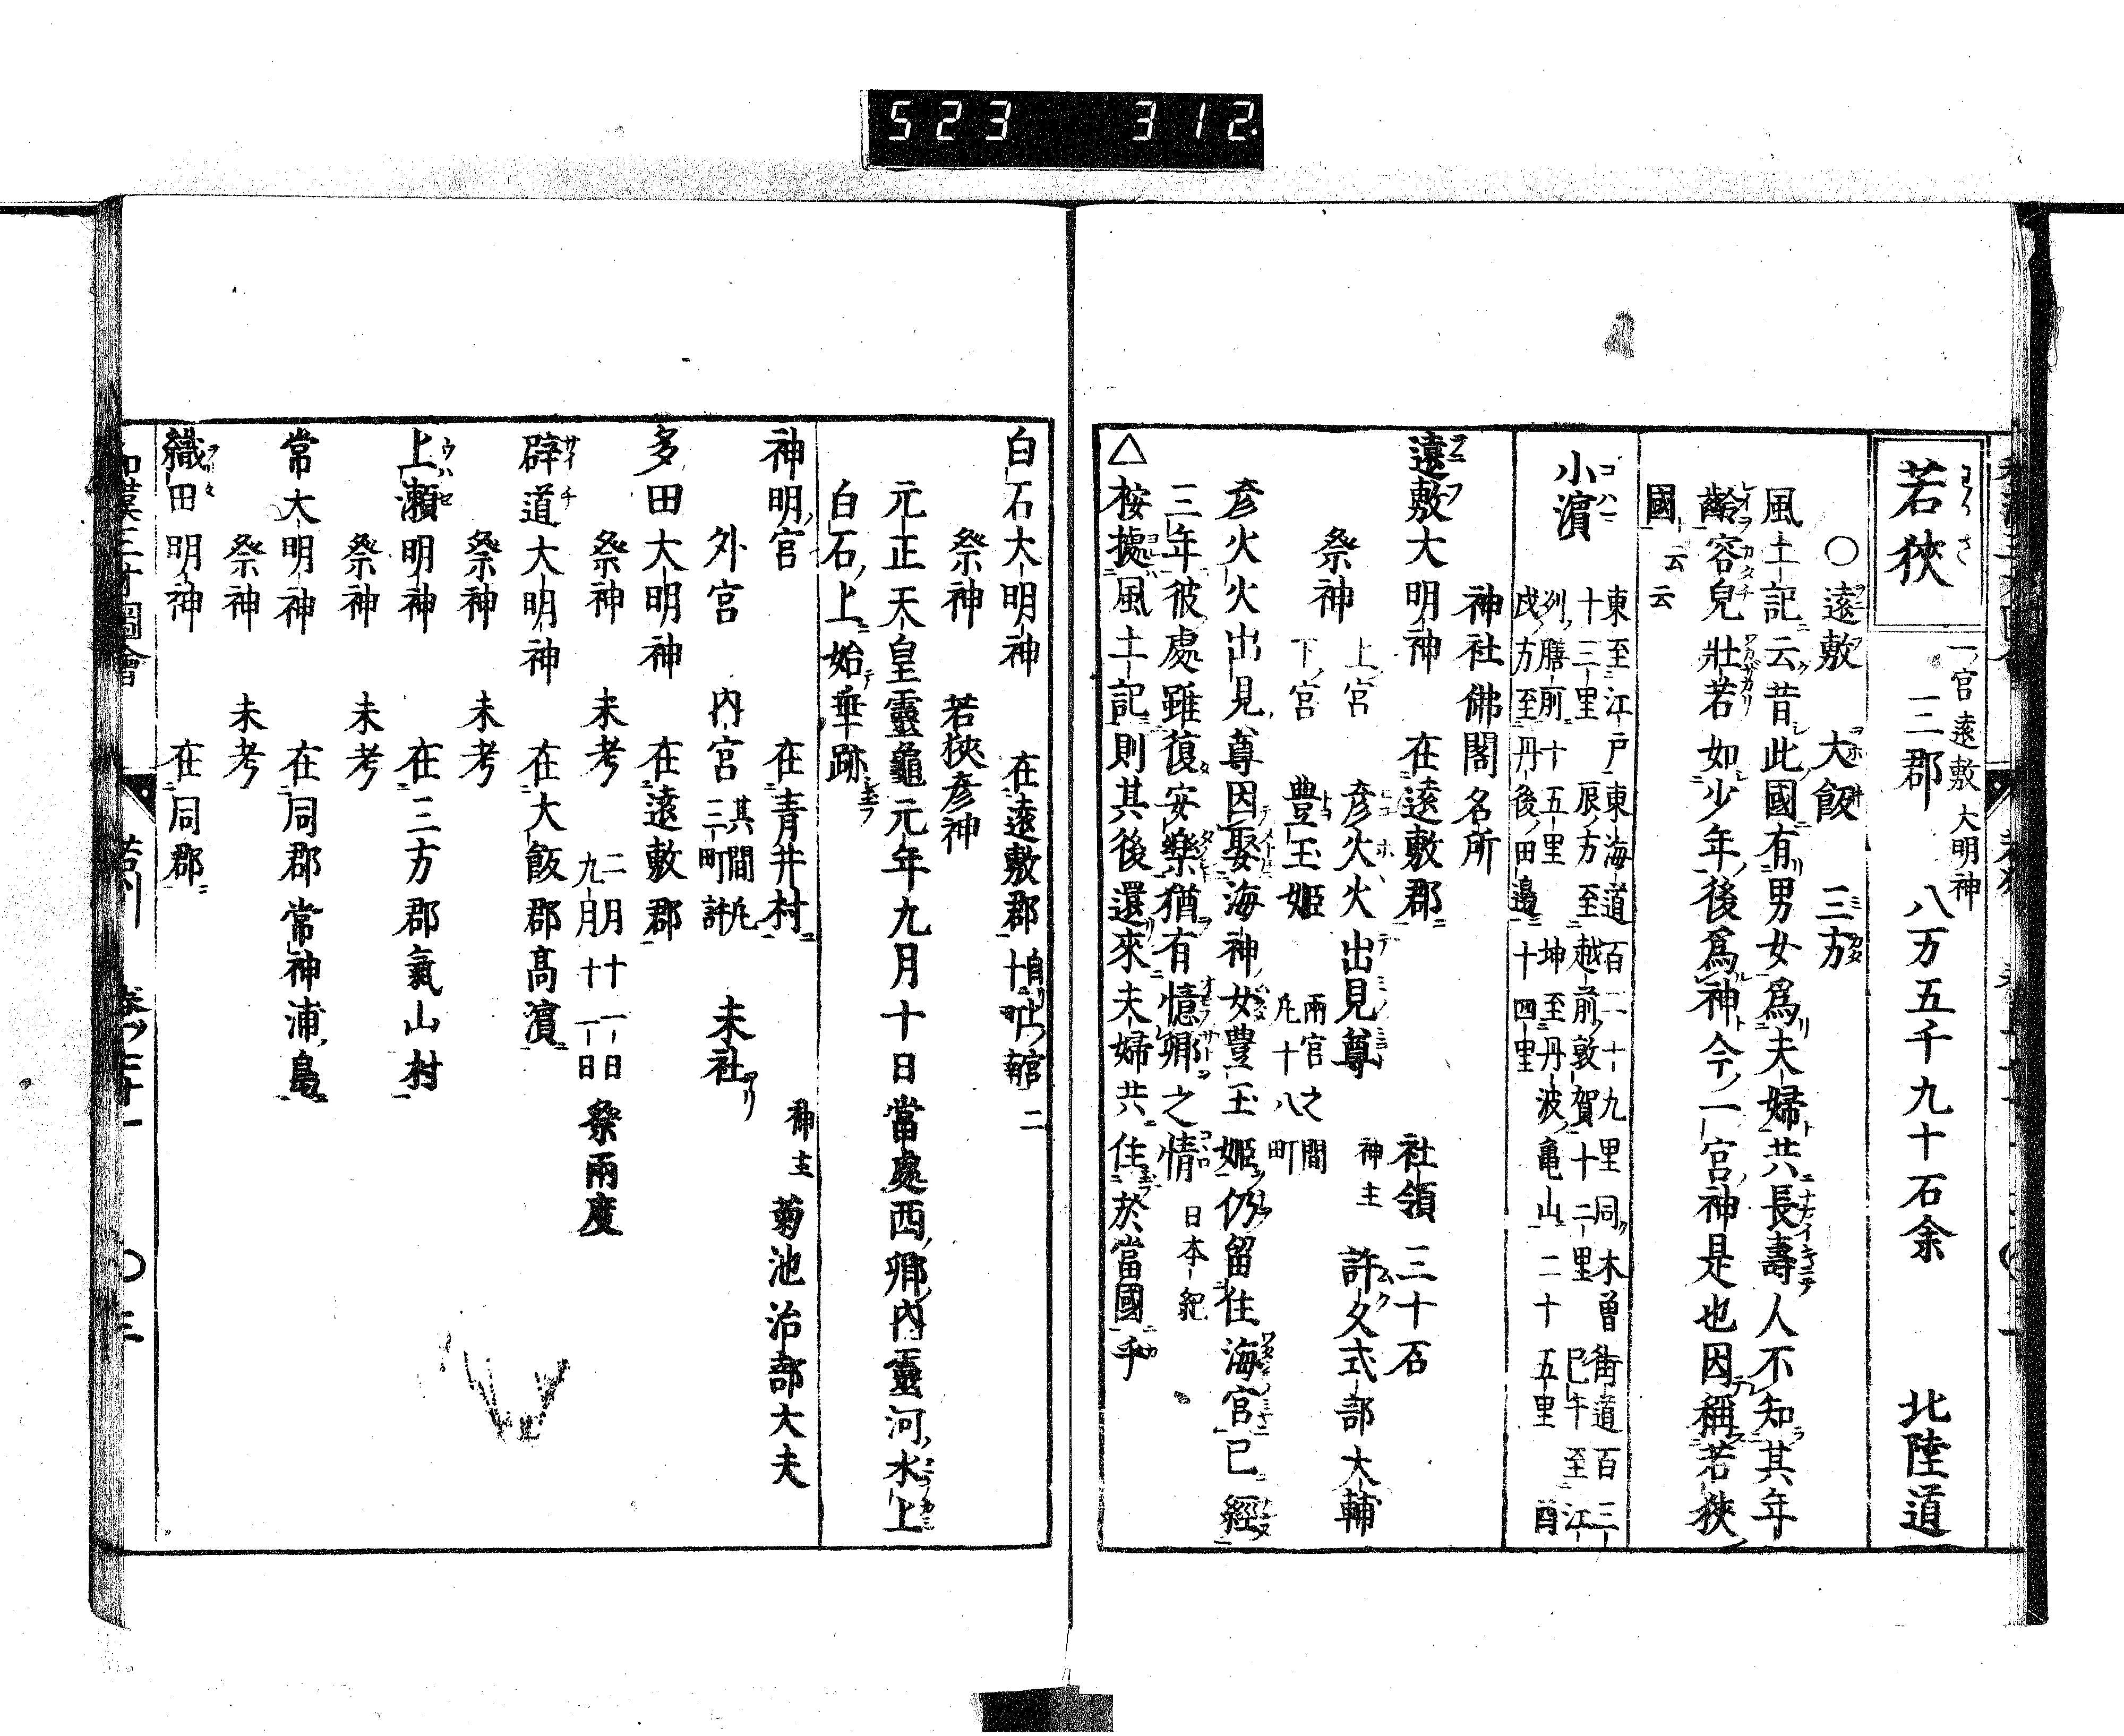 523 312
若狹
一ノ宮遠敷大明神
三郡 八万五千九十石余 北陸道
〇遠敷 大飯 三方
風土記云昔此國有男女爲夫婦共長壽人不知其年
齡容皃壯若如少年後爲神今一宮神是也因稱若狹
國云云
小濵
東至江戸東海道百二十九里同木曽街道百三
十三里 辰方至越前敦賀十二里 巳午至江
列膳前十五里 坤至丹波亀山二十五里 酉
戌方至丹後田邉十四里
神社佛閣名所
遠敷大明神 在遠敷郡 社領三十石
祭神 上宮 彦火火出見尊 神主 許攵式部大輔
下宮 豊玉姬 兩宮之間凢十八町
彦火火出見尊因娶海神女豊玉姬仍留住海宮已經
三年彼處雖復安樂猶有憶鄉之情 日本紀
△桉據風土記則其後還來夫婦共住於當國乎
白石大明神 在遠敷郡
祭神 若狹彦神
元正天皇靈龜元年九月十日當處西鄉內靈河水上
白石上始垂跡
神明宮 在青井村 神主 菊池治部大夫
外宮 內宮 其間凢三町計 末社
多田大明神 在遠敷郡
祭神 未考 二月十一日九月十一日 祭兩度
辟道大明神 在大飯郡髙濵
祭神 未考
上瀬明神 在三方郡氣山村
祭神 未考
常大明神 在同郡常神浦島
祭神 未考
織田明神 在同郡